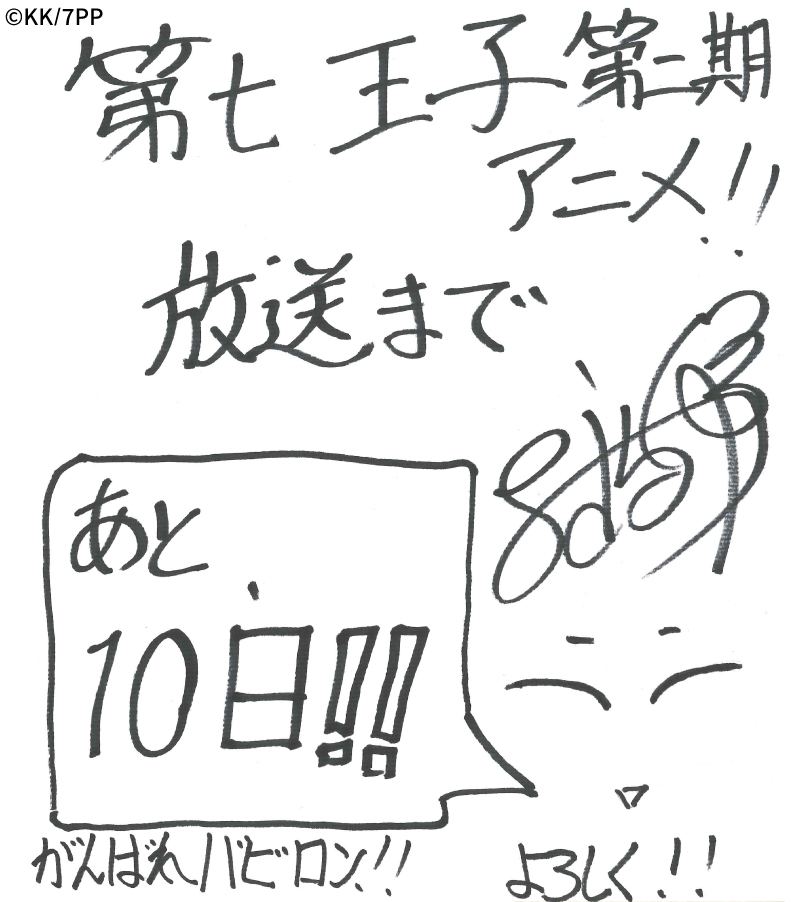 ©KK/7PP
第七王子第二期
アニメ!!
放送まで
あと
10日!!
がんばれバビロン!!
よろしく!!